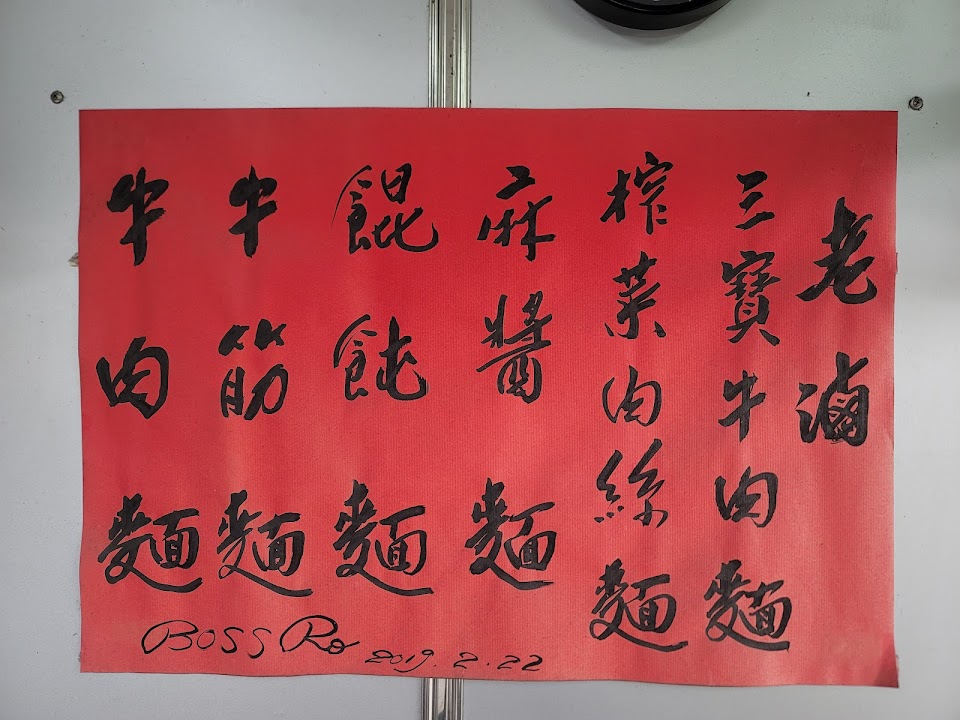 老滷
三寶牛肉麵
榨菜肉絲麵
麻醬麵
餛飩麵
牛筋麵
牛肉麵
BOSS Ro 2019.2.22